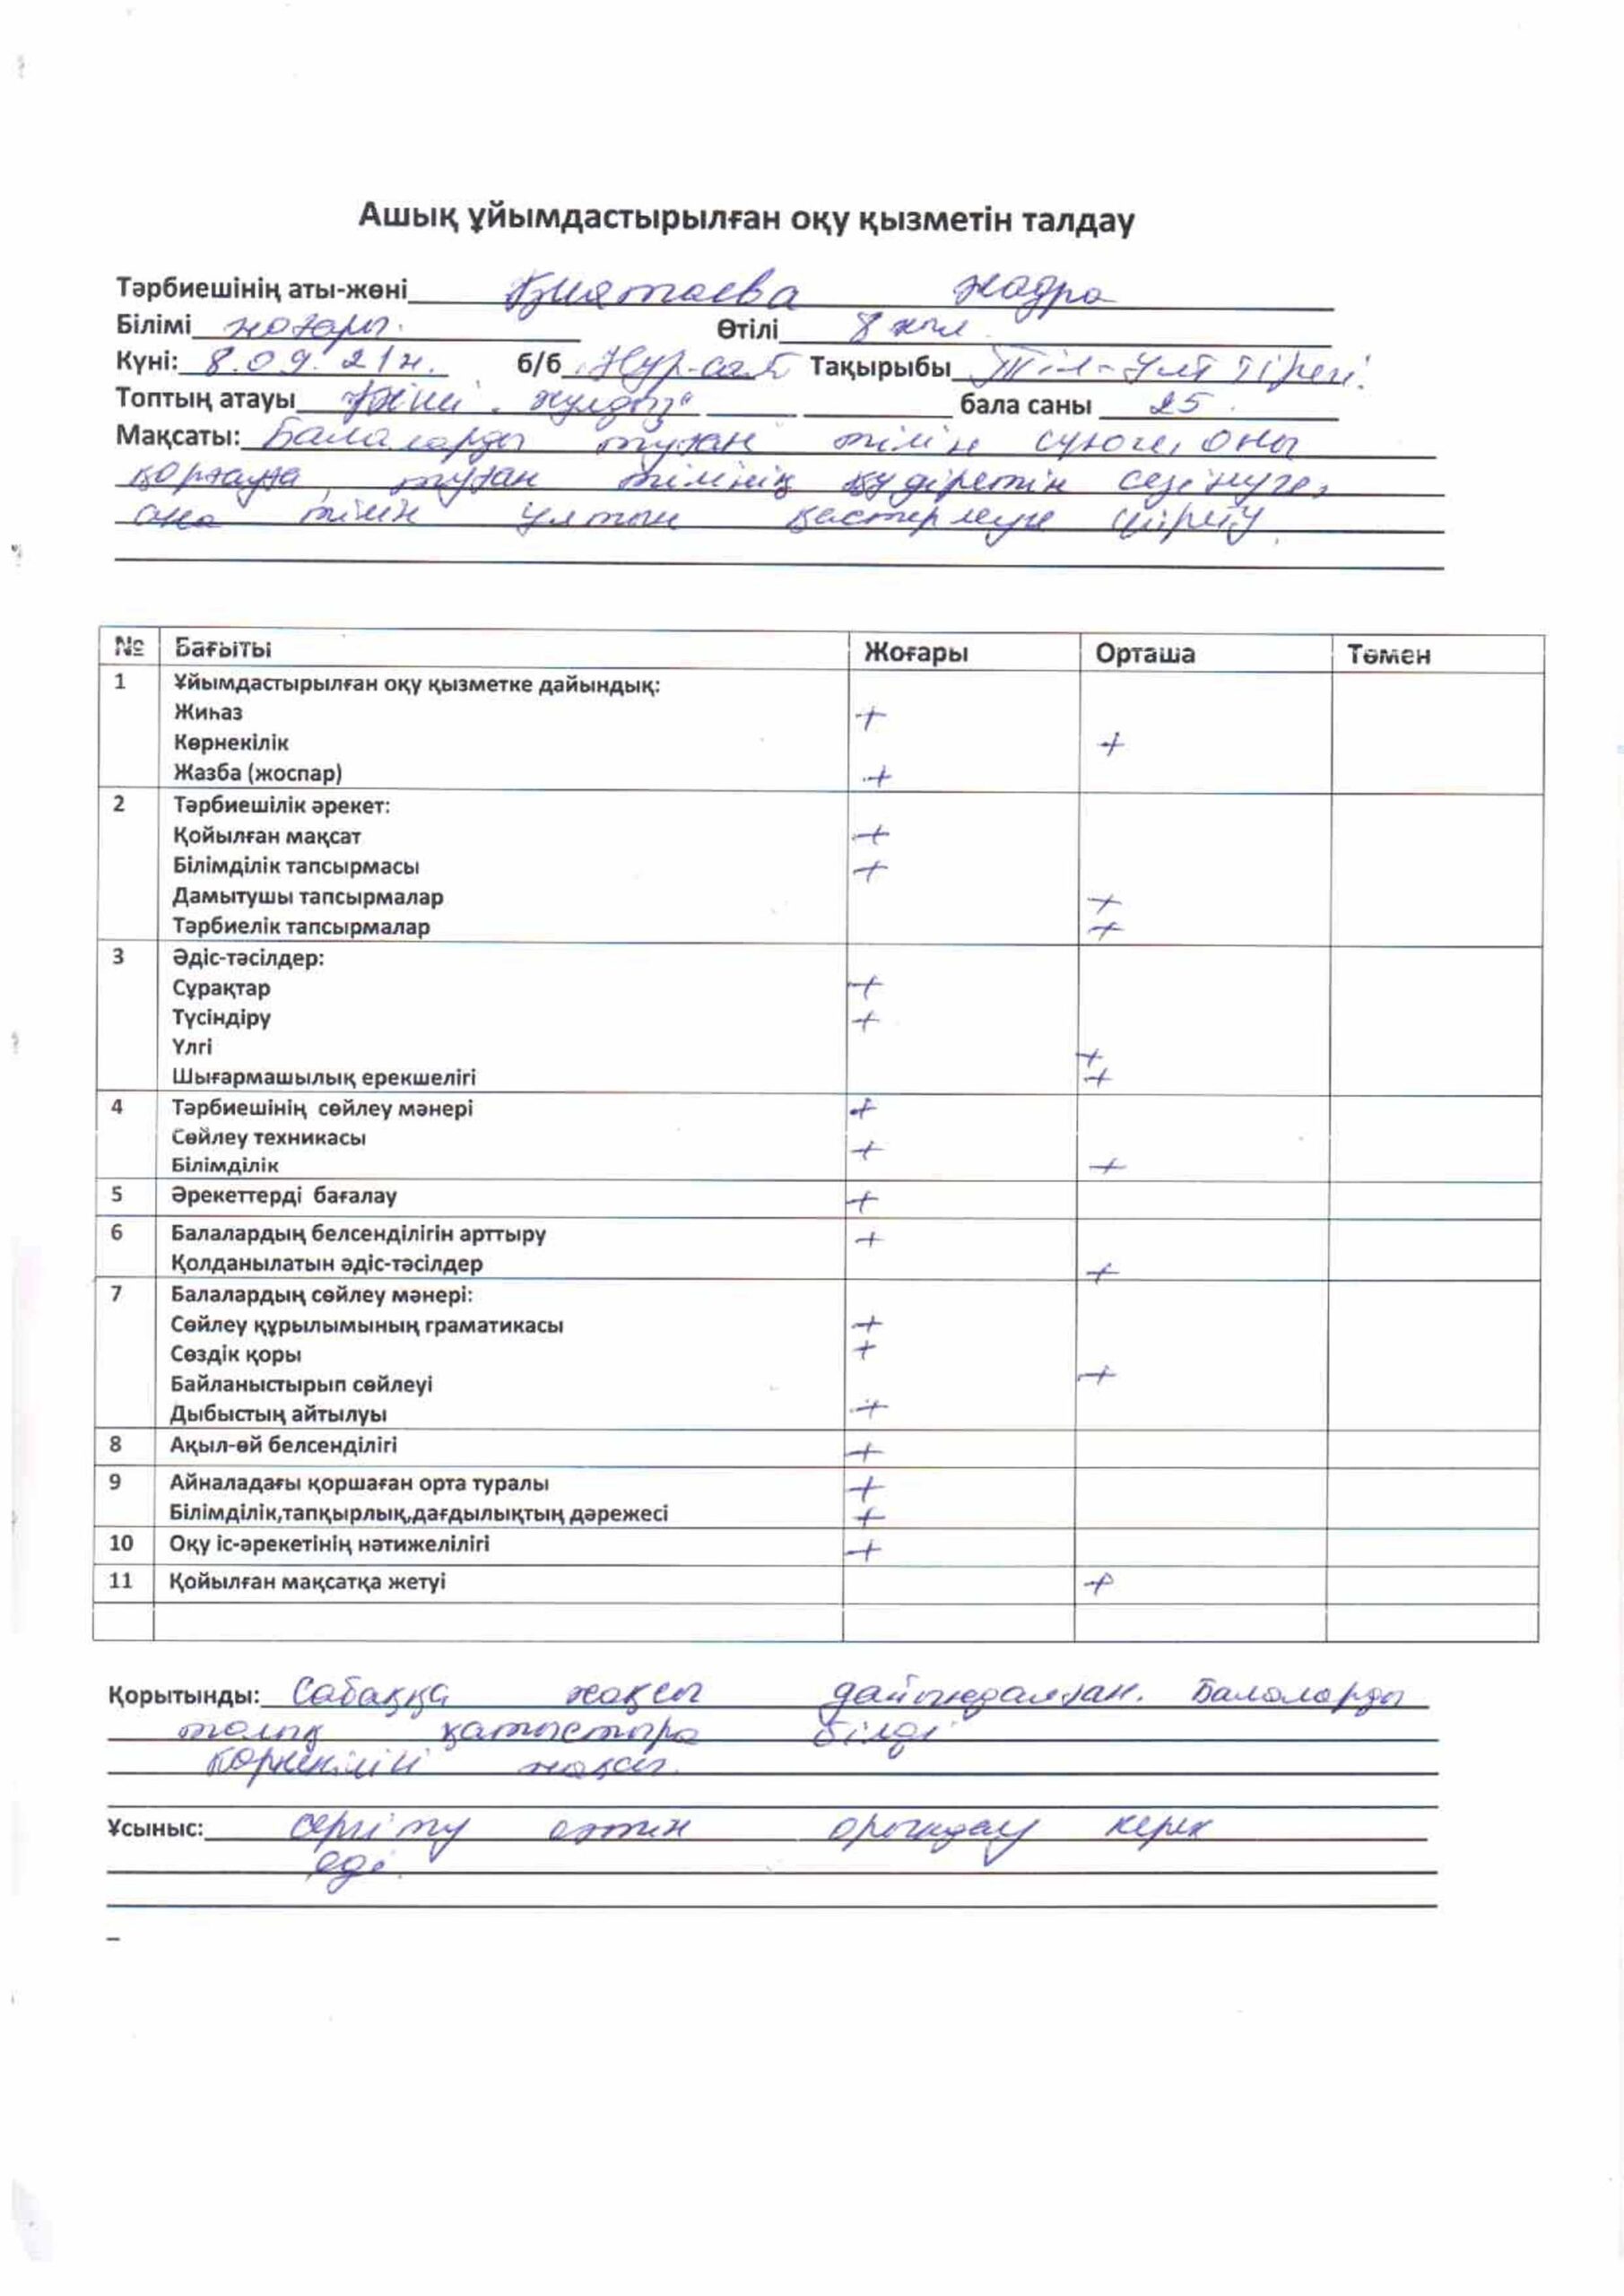 Ашық ұйымдастырылған оқу қызметін талдау
Тәрбиешінің аты-жөні Қиятаева Жадра
Білімі жоғары. Өтілі 8 жыл
Күні: 8.09.21ж. б/б Нұр-сәт Тақырыбы Тіл-Ұлт тірегі.
Топтың атауы жұлдыз" бала саны 25.
Мақсаты: Балаларды туған тілін сүюге, оны
қорғауға, туған тілінің құдіретін сезінуге,
ана тілін ұлтын қастерлеуге үйрету.
№ Бағыты Жоғары Орташа Төмен
1 Ұйымдастырылған оқу қызметке дайындық:
Жиһаз +
Көрнекілік +
Жазба (жоспар) +
2 Тәрбиешілік әрекет:
Қойылған мақсат +
Білімділік тапсырмасы +
Дамытушы тапсырмалар +
Тәрбиелік тапсырмалар +
3 Әдіс-тәсілдер:
Сұрақтар +
Түсіндіру +
Үлгі +
Шығармашылық ерекшелігі +
4 Тәрбиешінің сөйлеу мәнері +
Сөйлеу техникасы +
Білімділік +
5 Әрекеттерді бағалау +
6 Балалардың белсенділігін арттыру +
Қолданылатын әдіс-тәсілдер +
7 Балалардың сөйлеу мәнері:
Сөйлеу құрылымының граматикасы +
Сөздік қоры +
Байланыстырып сөйлеуі +
Дыбыстың айтылуы +
8 Ақыл-өй белсенділігі +
9 Айналадағы қоршаған орта туралы +
Білімділік,тапқырлық,дағдылықтың дәрежесі +
10 Оқу іс-әрекетінің нәтижелілігі +
11 Қойылған мақсатқа жетуі +
Қорытынды: Сабаққа жақсы дайындалған. Балаларды
толық қатыстыра білді
Көрнекілігі жақсы.
Ұсыныс: сергіту сәтін орындау керек
еді.